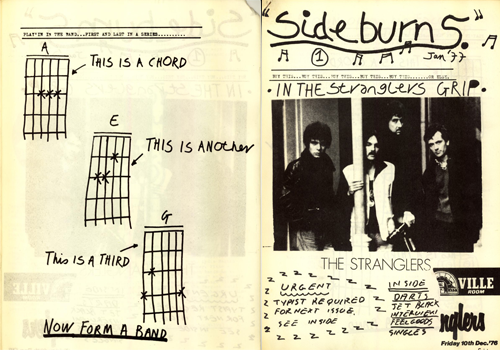 PLAY'IN IN THE BAND...FIRST AND LAST IN A SERIES..........
A
THIS IS A CHORD
E
THIS IS ANOther
G
This IS A THIRD
NOW FORM A BAND
"Sideburns"
1
Jan '77
IN THE stranglers GRIP
THE STRANGLERS
URGENT
TYPIST REQUIRED
FOR NEXT ISSUE.
SEE INSIDE
INSIDE
DARTS
JET BLACK
INTERVIEW
FEELGOODS
SINGLES
VILLE
ROOM
nglers
Friday 10th Dec. '76